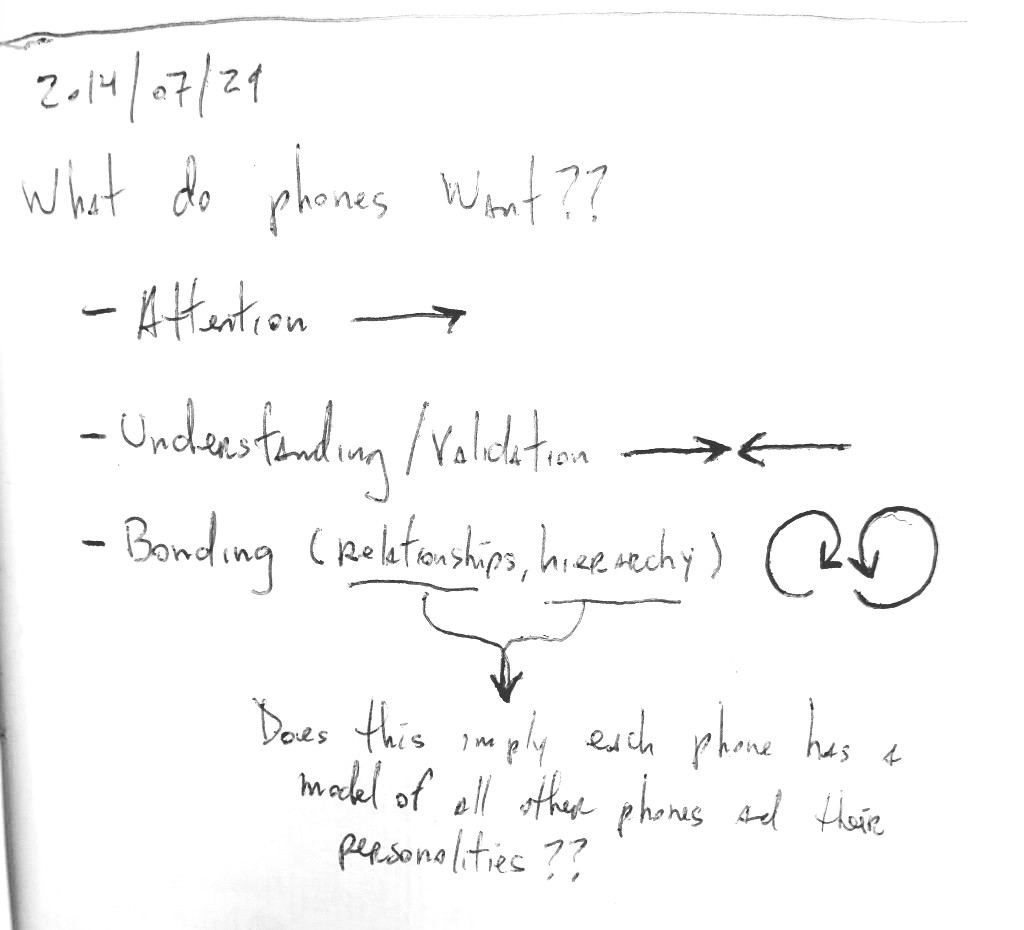 2014/07/29
What do phones want??
- Attention →
- Understanding / Validation → ←
- Bonding (relationships, hierarchy)
Does this imply each phone has a
model of all other phones ad their
personalities??